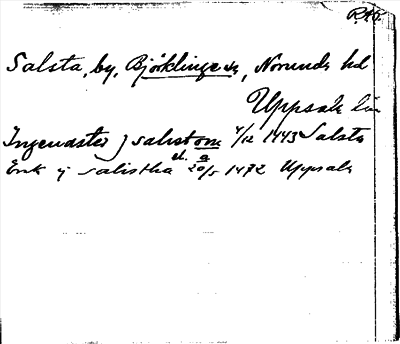 RAÖ
Salsta, by, Björklinge sn, Norunda hd
Uppsala län
Ingeualstet j salistom 4/12 1443 Salsta
Erik ij salistha 20/5 1472 Uppsala